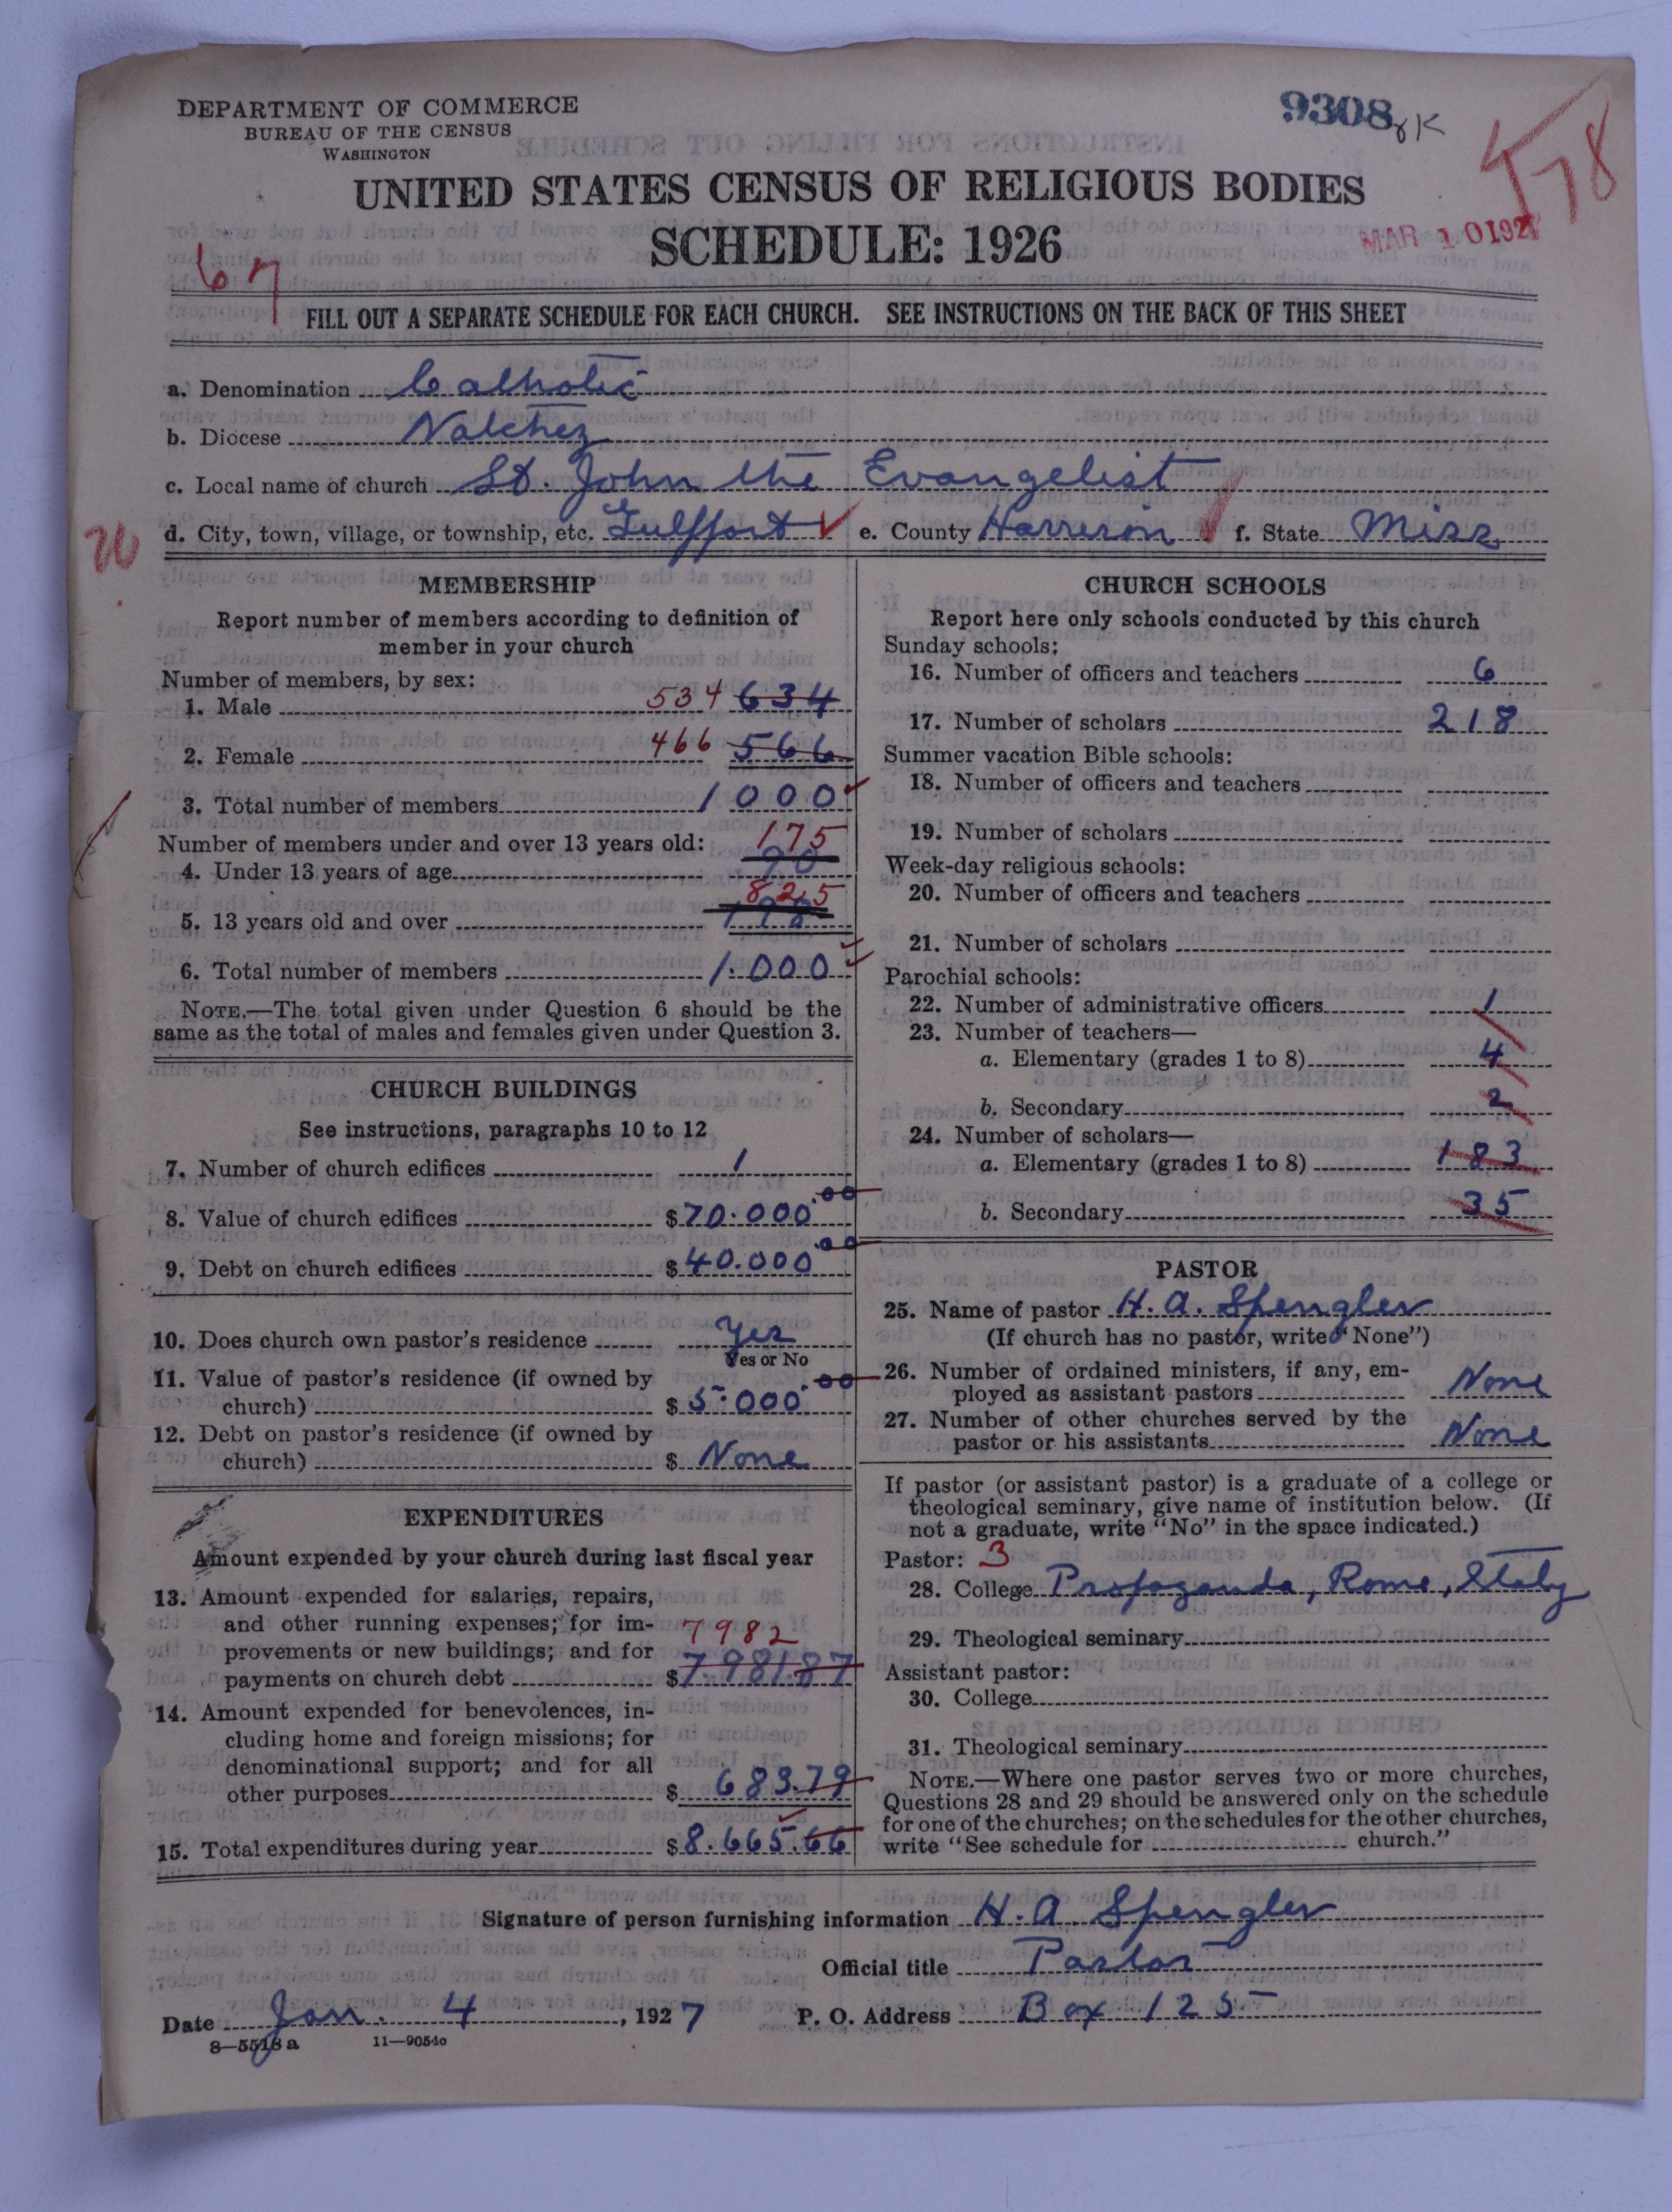 DEPARTMENT OF COMMERCE
BUREAU OF THE CENSUS
WASHINGTON
9308
8K
478
UNITED STATES CENSUS OF RELIGIOUS BODIES
SCHEDULE: 1926
MAR 10 1927
67
FILL OUT A SEPARATE SCHEDULE FOR EACH CHURCH. SEE INSTRUCTIONS ON THE BACK OF THIS SHEET
a. Denomination Catholic
b. Diocese Natchez
c. Local name of church St. John the Evangelist
d. City, town, village, or township, etc. Gulfport ✓ e. County Harrison f. State Miss
MEMBERSHIP
Report number of members according to definition of
member in your church
Number of members, by sex:
1. Male 534 634
2. Female 466 566
3. Total number of members 1000
Number of members under and over 13 years old: 175
4. Under 13 years of age 90
825
5. 13 years old and over
6. Total number of members 1.000
NOTE.—The total given under Question 6 should be the
same as the total of males and females given under Question 3.
CHURCH BUILDINGS
See instructions, paragraphs 10 to 12
7. Number of church edifices 1
8. Value of church edifices $70.000.00
9. Debt on church edifices $40.000.00
10. Does church own pastor's residence Yes
Yes or No
11. Value of pastor's residence (if owned by
church) $5.000.00
12. Debt on pastor's residence (if owned by
church) $ None
EXPENDITURES
Amount expended by your church during last fiscal year
13. Amount expended for salaries, repairs,
and other running expenses; for im-
provements or new buildings; and for 7982
payments on church debt $7.981.87
14. Amount expended for benevolences, in-
cluding home and foreign missions; for
denominational support; and for all
other purposes $ 683.79
15. Total expenditures during year $8.665.66
CHURCH SCHOOLS
Report here only schools conducted by this church
Sunday schools:
16. Number of officers and teachers 6
17. Number of scholars 218
Summer vacation Bible schools:
18. Number of officers and teachers
19. Number of scholars
Week-day religious schools:
20. Number of officers and teachers
21. Number of scholars
Parochial schools:
22. Number of administrative officers 1
23. Number of teachers—
a. Elementary (grades 1 to 8) 4
b. Secondary 2
24. Number of scholars—
a. Elementary (grades 1 to 8) 183
b. Secondary 35
PASTOR
25. Name of pastor H. A. Spengler
(If church has no pastor, write "None")
26. Number of ordained ministers, if any, em-
ployed as assistant pastors None
27. Number of other churches served by the
pastor or his assistants None
If pastor (or assistant pastor) is a graduate of a college or
theological seminary, give name of institution below. (If
not a graduate, write "No" in the space indicated.)
Pastor: 3
28. College Propaganda, Rome, Italy
29. Theological seminary
Assistant pastor:
30. College
31. Theological seminary
NOTE.—Where one pastor serves two or more churches,
Questions 28 and 29 should be answered only on the schedule
for one of the churches; on the schedules for the other churches,
write "See schedule for church."
Signature of person furnishing information H. A. Spengler
Official title Pastor
Date Jan. 4, 1927 P. O. Address Box 125
8—5518 a 11—9054c